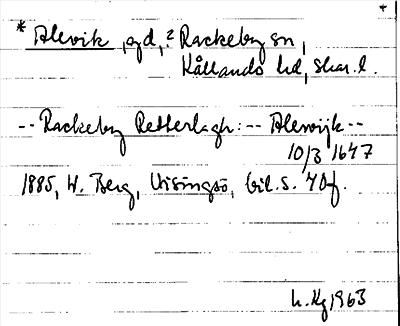 +
* Alevik, gd, ? Rackeby sn,
Kållands hd, Skar. l.
-- Rackeby Retterlagh: -- Alewijk --
10/3 1647
1885, W. Berg, Visingsö, bil. S. 40f.
L. Hg 1963